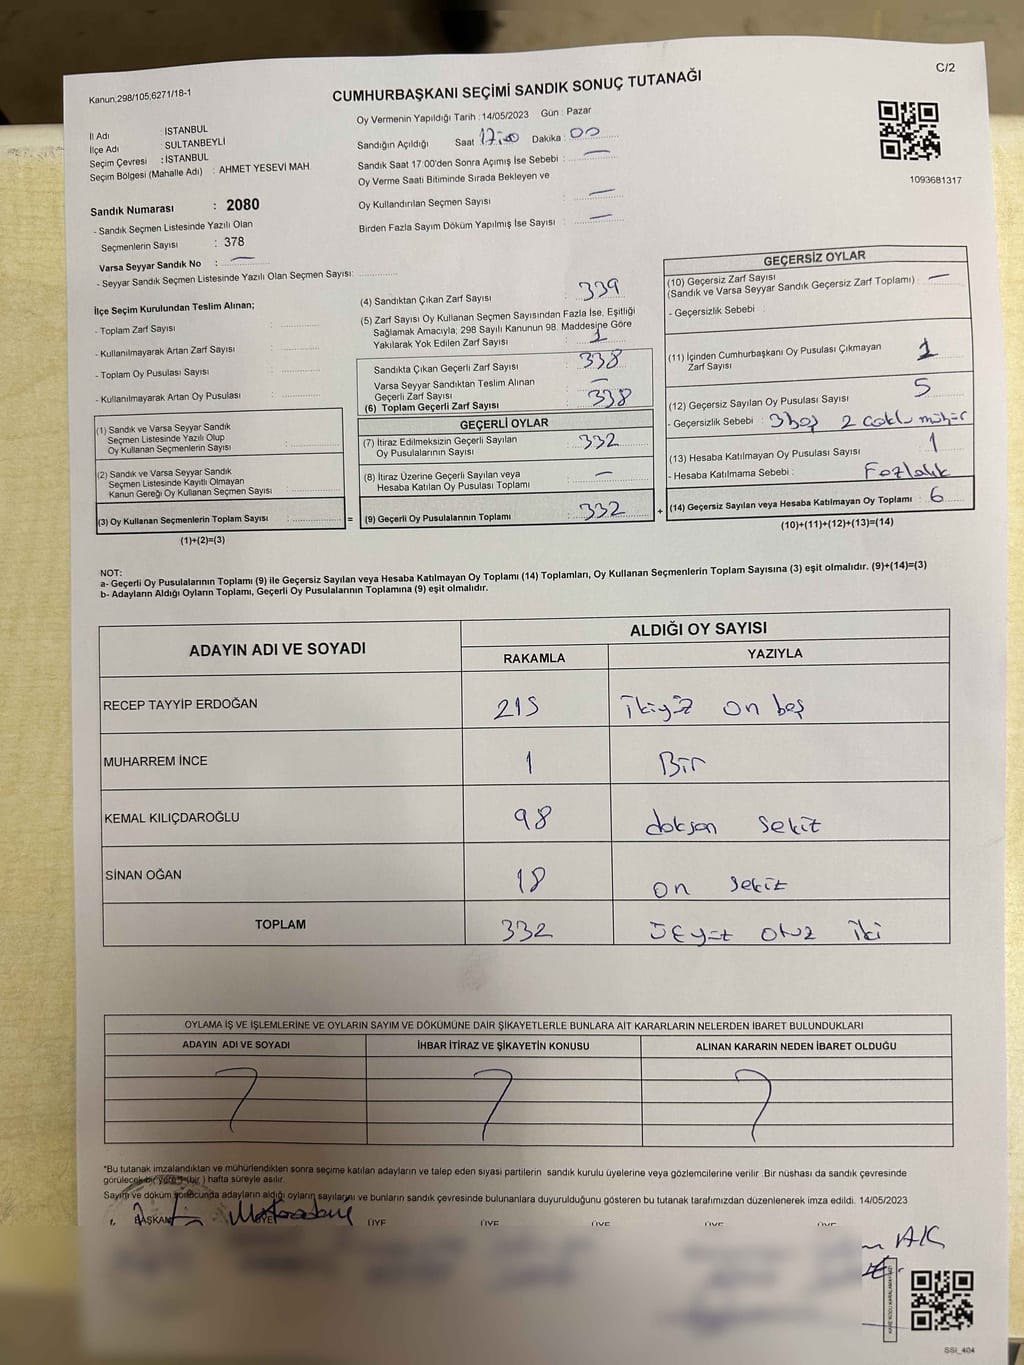 Kanun,298/105,6271/18-1
C/2
CUMHURBAŞKANI SEÇİMİ SANDIK SONUÇ TUTANAĞI
1093681317
İl Adı : İSTANBUL
İlçe Adı : SULTANBEYLİ
Seçim Çevresi : İSTANBUL
Seçim Bölgesi (Mahalle Adı) : AHMET YESEVİ MAH.
Sandık Numarası : 2080
- Sandık Seçmen Listesinde Yazılı Olan
Seçmenlerin Sayısı : 378
Varsa Seyyar Sandık No : —
- Seyyar Sandık Seçmen Listesinde Yazılı Olan Seçmen Sayısı:
Oy Vermenin Yapıldığı Tarih : 14/05/2023 Gün : Pazar
Sandığın Açıldığı Saat 17:00 Dakika : 00
Sandık Saat 17:00'den Sonra Açımış İse Sebebi : —
Oy Verme Saati Bitiminde Sırada Bekleyen ve
Oy Kullandırılan Seçmen Sayısı : —
Birden Fazla Sayım Döküm Yapılmış İse Sayısı : —
İlçe Seçim Kurulundan Teslim Alınan;
- Toplam Zarf Sayısı :
- Kullanılmayarak Artan Zarf Sayısı :
- Toplam Oy Pusulası Sayısı :
- Kullanılmayarak Artan Oy Pusulası :
(1) Sandık ve Varsa Seyyar Sandık
Seçmen Listesinde Yazılı Olup
Oy Kullanan Seçmenlerin Sayısı :
(2) Sandık ve Varsa Seyyar Sandık
Seçmen Listesinde Kayıtlı Olmayan
Kanun Gereği Oy Kullanan Seçmen Sayısı :
(3) Oy Kullanan Seçmenlerin Toplam Sayısı : =
(1)+(2)=(3)
(4) Sandıktan Çıkan Zarf Sayısı : 339
(5) Zarf Sayısı Oy Kullanan Seçmen Sayısından Fazla İse, Eşitliği
Sağlamak Amacıyla; 298 Sayılı Kanunun 98. Maddesine Göre
Yakılarak Yok Edilen Zarf Sayısı : 1
Sandıkta Çıkan Geçerli Zarf Sayısı : 338
Varsa Seyyar Sandıktan Teslim Alınan
Geçerli Zarf Sayısı : —
(6) Toplam Geçerli Zarf Sayısı : 338
GEÇERLİ OYLAR
(7) İtiraz Edilmeksizin Geçerli Sayılan
Oy Pusulalarının Sayısı : 332
(8) İtiraz Üzerine Geçerli Sayılan veya
Hesaba Katılan Oy Pusulası Toplamı : —
(9) Geçerli Oy Pusulalarının Toplamı : 332 +
GEÇERSİZ OYLAR
(10) Geçersiz Zarf Sayısı
(Sandık ve Varsa Seyyar Sandık Geçersiz Zarf Toplamı) : —
- Geçersizlik Sebebi :
(11) İçinden Cumhurbaşkanı Oy Pusulası Çıkmayan
Zarf Sayısı : 1
(12) Geçersiz Sayılan Oy Pusulası Sayısı : 5
- Geçersizlik Sebebi : 3 boş 2 çoklu mühür
(13) Hesaba Katılmayan Oy Pusulası Sayısı : 1
- Hesaba Katılmama Sebebi : Fazlalık
(14) Geçersiz Sayılan veya Hesaba Katılmayan Oy Toplamı : 6
(10)+(11)+(12)+(13)=(14)
NOT:
a- Geçerli Oy Pusulalarının Toplamı (9) ile Geçersiz Sayılan veya Hesaba Katılmayan Oy Toplamı (14) Toplamları, Oy Kullanan Seçmenlerin Toplam Sayısına (3) eşit olmalıdır. (9)+(14)=(3)
b- Adayların Aldığı Oyların Toplamı, Geçerli Oy Pusulalarının Toplamına (9) eşit olmalıdır.
ADAYIN ADI VE SOYADI
ALDIĞI OY SAYISI
RAKAMLA YAZIYLA
RECEP TAYYİP ERDOĞAN 215 ikiyüz on beş
MUHARREM İNCE 1 Bir
KEMAL KILIÇDAROĞLU 98 doksan sekiz
SİNAN OĞAN 18 on sekiz
TOPLAM 332 üçyüz otuz iki
OYLAMA İŞ VE İŞLEMLERİNE VE OYLARIN SAYIM VE DÖKÜMÜNE DAİR ŞİKAYETLERLE BUNLARA AİT KARARLARIN NELERDEN İBARET BULUNDUKLARI
ADAYIN ADI VE SOYADI İHBAR İTİRAZ VE ŞİKAYETİN KONUSU ALINAN KARARIN NEDEN İBARET OLDUĞU
*Bu tutanak imzalandıktan ve mühürlendikten sonra seçime katılan adayların ve talep eden siyasi partilerin sandık kurulu üyelerine veya gözlemcilerine verilir. Bir nüshası da sandık çevresinde
görülecek bir yere 1 (bir ) hafta süreyle asılır.
Sayım ve döküm sonucunda adayların aldığı oyların sayılarını ve bunların sandık çevresinde bulunanlara duyurulduğunu gösteren bu tutanak tarafımızdan düzenlenerek imza edildi. 14/05/2023
BAŞKAN ÜYE ÜYE ÜYE ÜYE ÜYE ÜYE
SSI_404